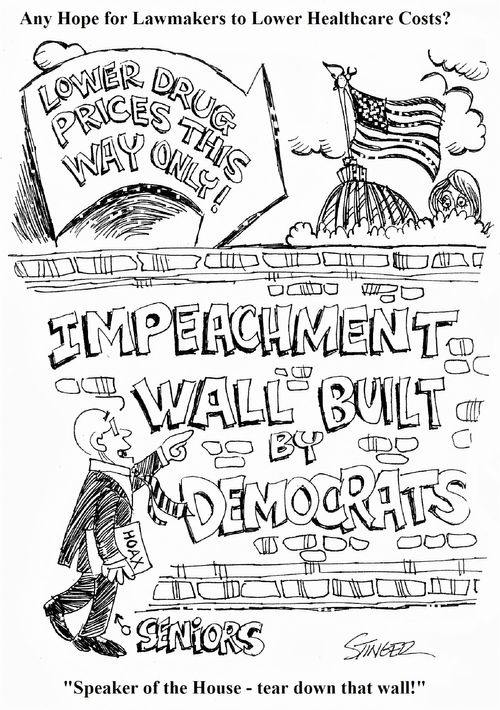 Any Hope for Lawmakers to Lower Healthcare Costs?
LOWER DRUG
PRICES THIS
WAY ONLY!
IMPEACHMENT
WALL BUILT
BY
DEMOCRATS
HOAX
SENIORS
STINGER
"Speaker of the House - tear down that wall!"